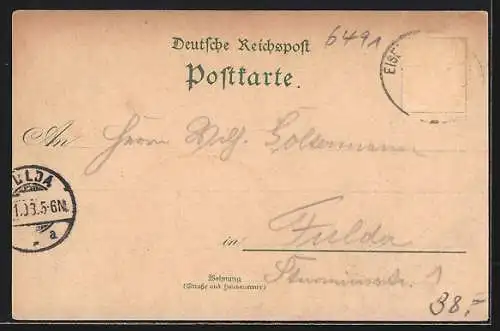 6491
Deutsche Reichspost
Postkarte.
EIS
An Herrn Wilh. Goltermann
ULDA
1.03.5-6N.
a
in Fulda
Wohnung
(Straße und Hausnummer)
1
38.-